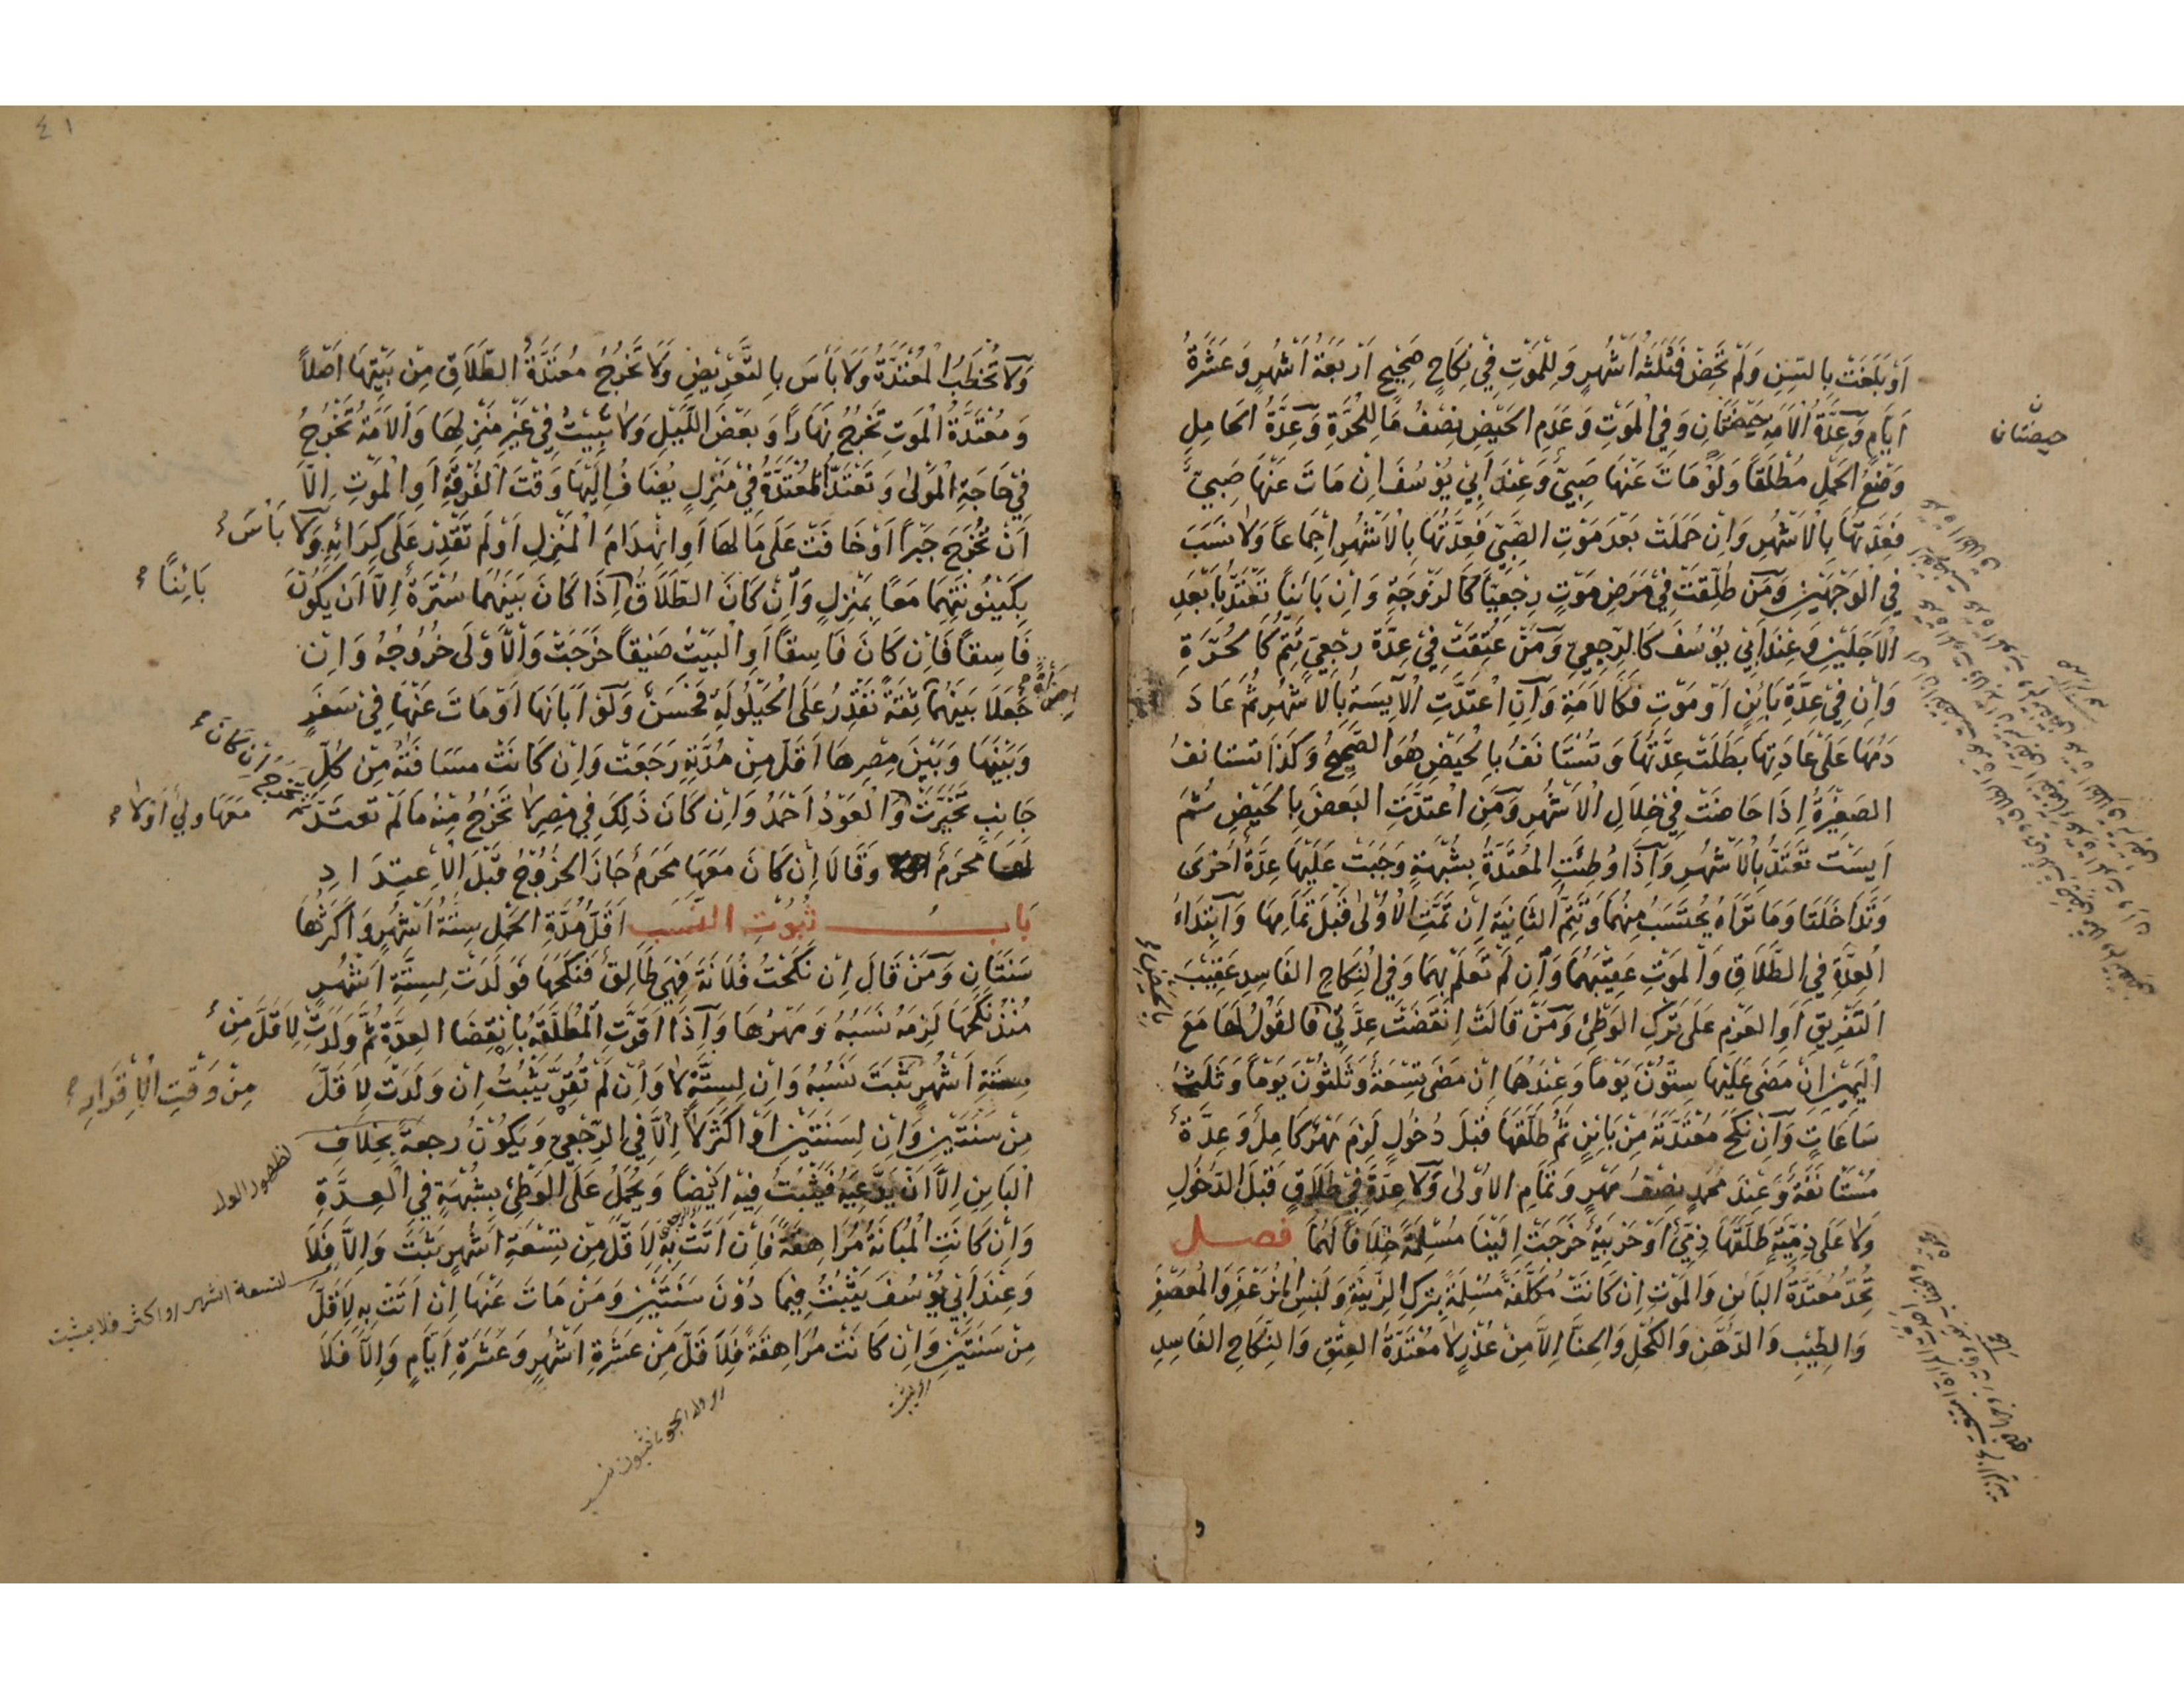 اَوْ بَلَغَتْ بِالسِّنِ وَلَمْ تَحِضْ فَثَلٰثَةُ اَشْهُرٍ وَلِلْمَوْتِ فِيْ نِكَاحٍ صَحِيْحٍ اَرْبَعَةُ اَشْهُرٍ وَعَشَرَةُ
اَيَّامٍ وَعِدَّةُ الْاَمَةِ حَيْضَتَانِ وَفِي الْمَوْتِ وَعَدَمِ الْحَيْضِ نِصْفُ مَا لِلْحُرَّةِ وَعِدَّةُ الْحَامِلِ
حيضتان
وَضْعُ الْحَمْلِ مُطْلَقًا وَلَوْ مَاتَ عَنْهَا صَبِيٌّ وَعِنْدَ اَبِيْ يُوْسُفَ اِنْ مَاتَ عَنْهَا صَبِيٌّ
فَعِدَّتُهَا بِالْاَشْهُرِ وَاِنْ حَمَلَتْ بَعْدَ مَوْتِ الصَّبِيِّ فَعِدَّتُهَا بِالْاَشْهُرِ اِجْمَاعًا وَلَا نَسَبَ
فِي الْوَجْهَيْنِ وَمَنْ طُلِّقَتْ فِيْ مَرَضِ مَوْتٍ رِجْعِيًّا كَالزَّوْجَةِ وَاِنْ بَائِنًا تَعْتَدُّ بِاَبْعَدِ
الْاَجَلَيْنِ وَعِنْدَ اَبِيْ يُوْسُفَ كَالرِّجْعِيِّ وَمَنْ عُتِقَتْ فِيْ عِدَّةِ رِجْعِيٍّ تُتِمُّ كَالْحُرَّةِ
وَاِنْ فِيْ عِدَّةِ بَائِنٍ اَوْ مَوْتٍ فَكَالْاَمَةِ وَاِنِ اعْتَدَّتِ الْاٰيِسَةُ بِالْاَشْهُرِ ثُمَّ عَادَ
دَمُهَا عَلَى عَادَتِهَا بَطَلَتْ عِدَّتُهَا وَتَسْتَانَفُ بِالْحَيْضِ هُوَ الصَّحِيْحُ وَكَذَا تستانفُ
الصَغِيْرَةُ اِذَا حَاضَتْ فِيْ خِلَالِ الْاَشْهُرِ وَمَنِ اعْتَدَّتِ الْبَعْضَ بِالْحَيْضِ ثُمَّ
اَيِسَتْ تَعْتَدُّ بِالْاَشْهُرِ وَاِذَا وُطِئَتِ الْمُعْتَدَّةُ بِشُبْهَةٍ وَجَبَتْ عَلَيْهَا عِدَّةٌ اُخْرَى
وَتَدَاخَلَتَا وَمَا تَرَاهُ يُحْتَسَبُ مِنْهُمَا وَتُتِمُّ الثَّانِيَةَ اِنْ تَمَّتِ الْاُوْلٰى قَبْلَ تَمَامِهَا وَابْتِدَاءُ
الْعِدَّةِ فِي الطَّلَاقِ وَالْمَوْتِ عَقِيْبَهُمَا وَاِنْ لَمْ تَعْلَمْ بِهِمَا وَفِي النِّكَاحِ الْفَاسِدِ عَقِيْبَ
التَّفْرِيْقِ اَوِ الْعَزْمِ عَلَى تَرْكِ الْوَطْئِ وَمَنْ قَالَتْ اِنْقَضَتْ عِدَّتِيْ فَالْقَوْلُ لَهَا مَعَ
الْيَمِيْنِ اِنْ مَضَى عَلَيْهَا سِتُّوْنَ يَوْمًا وَعِنْدَهُمَا اِنْ مَضَى تِسْعَةٌ وَثَلٰثُوْنَ يَوْمًا وَثَلٰثُ
سَاعَاتٍ وَاِنْ نَكَحَ مُعْتَدَّتَهُ مِنْ بَائِنٍ ثُمَّ طَلَّقَهَا قَبْلَ دُخُوْلٍ لَزِمَ مَهْرٌ كَامِلٌ وَعِدَّةٌ
مُسْتَانَفَةٌ وَعِنْدَ مُحَمَّدٍ نِصْفُ مَهْرٍ وَتَمَامِ الْاُوْلٰى وَلَا عِدَّةَ فِيْ طَلَاقٍ قَبْلَ الدُّخُوْلِ
وَلَا عَلَى ذِمِّيَّةٍ طَلَّقَهَا ذِمِّيٌّ اَوْ حَرْبِيَّةٍ خَرَجَتْ اِلَيْنَا مُسْلِمَةً خِلَافًا لَهُمَا فصل
تُحِدُّ مُعْتَدَّةُ الْبَائِنِ وَالْمَوْتِ اِنْ كَانَتْ مُكَلَّفَةً مُسْلِمَةً بِتَرْكِ الزِّيْنَةِ وَلَبْسِ الْمُزَعْفَرِ وَالْمُعَصْفَرِ
وَالطِّيْبِ وَالدُّهْنِ وَالْكُحْلِ وَالْحِنَّا اِلَّا مِنْ عُذْرٍ لَا مُعْتَدَّةُ الْعِتْقِ وَالنِّكَاحِ الْفَاسِدِ
٤١
وَلَا تُخْطَبُ الْمُعْتَدَّةُ وَلَا بَأْسَ بِالتَّعْرِيْضِ وَلَا تَخْرُجُ مُعْتَدَّةُ الطَّلَاقِ مِنْ بَيْتِهَا اَصْلًا
وَمُعْتَدَّةُ الْمَوْتِ تَخْرُجُ نَهَارًا وَبَعْضَ اللَّيْلِ وَلَا تَبِيْتُ فِيْ غَيْرِ مَنْزِلِهَا وَالْاَمَةُ تَخْرُجُ
فِيْ حَاجَةِ الْمَوْلٰى وَتَعْتَدُّ الْمُعْتَدَّةُ فِيْ مَنْزِلٍ يُضَافُ اِلَيْهَا وَقْتَ الْفُرْقَةِ اَوِ الْمَوْتِ اِلَّا
اَنْ تُخْرَجَ جَبْرًا اَوْ خَافَتْ عَلَى مَالِهَا اَوِ انْهِدَامَ الْمَنْزِلِ اَوْ لَمْ تَقْدِرْ عَلَى كِرَائِهِ وَلَا بَاْسَ
بِكَيْنُوْنَتِهِمَا مَعًا بِمَنْزِلٍ وَاِنْ كَانَ الطَّلَاقُ اِذَا كَانَ بَيْنَهُمَا سُتْرَةٌ اِلَّا اَنْ يَكُوْنَ
بَائِنًا
فَاسِقًا فَاِنْ كَانَ فَاسِقًا اَوِ الْبَيْتُ ضَيِّقًا خَرَجَتْ وَالْاَوْلَى خُرُوْجُهُ وَاِنْ
جَعَلَا بَيْنَهُمَا ثِقَةً تَقْدِرُ عَلَى الْحَيْلُوْلَةِ فَحَسَنٌ وَلَوْ اَبَانَهَا اَوْ مَاتَ عَنْهَا فِيْ سَفَرٍ
وَبَيْنَهَا وَبَيْنَ مِصْرِهَا اَقَلُّ مِنْ مُدَّتِهِ رَجَعَتْ وَاِنْ كَانَتْ مَسَافَتُهُ مِنْ كُلِّ
جَانِبٍ تَخَيَّرَتْ وَالْعَوْدُ اَحْمَدُ وَاِنْ كَانَ ذَلِكَ فِيْ مِصْرٍ لَا تَخْرُجُ مِنْهُ مَا لَمْ تَعْتَدَّ
ثم تخرج اِنْ كَانَ
معها ولي اَوْلا
لها مَحْرَمٌ وَقَالَا اِنْ كَانَ مَعَهَا مَحْرَمٌ جَازَ الْخُرُوْجُ قَبْلَ الْاِعْتِدَادِ
بَابُ ثُبُوْتِ النَّسَبِ اَقَلُّ مُدَّةِ الْحَمْلِ سِتَّةُ اَشْهُرٍ وَاَكْثَرُهَا
سَنَتَانِ وَمَنْ قَالَ اِنْ نَكَحْتُ فُلَانَةَ فَهِيَ طَالِقٌ فَنَكَحَهَا فَوَلَدَتْ لِسِتَّةِ اَشْهُرٍ
مُنْذُ نَكَحَهَا لَزِمَهُ نَسَبُهُ وَمَهْرُهَا وَاِذَا اَقَرَّتِ الْمُطَلَّقَةُ بِانْقِضَا الْعِدَّةِ ثُمَّ وَلَدَتْ لِاَقَلَّ مِنْ
ستة اَشْهُرٍ ثَبَتَ نَسَبُهُ وَاِنْ لِسِتَّةٍ لَا وَاِنْ لَمْ تُقِرَّ يَثْبُتُ اِنْ وَلَدَتْ لِاَقَلَّ
مِنْ وَقْتِ الْاِقْرَارِ
مِنْ سَنَتَيْنِ وَاِنْ لِسَنَتَيْنِ اَوْ اَكْثَرَ لَا اِلَّا فِي الرِّجْعِيِّ وَيَكُوْنُ رَجْعَةً بِخِلَافِ
لظهور الولد
الْبَائِنِ اِلَّا اَنْ يَدَّعِيَهُ فَيَثْبُتُ فِيْهِ اَيْضًا وَيُحْمَلُ عَلَى الْوَطْئِ بِشُبْهَةٍ فِي الْعِدَّةِ
وَاِنْ كَانَتِ الْمُبَانَةُ مُرَاهِقَةً فَاِنْ اَتَتْ بِهِ لِاَقَلَّ مِنْ تِسْعَةِ اَشْهُرٍ ثَبَتَ وَاِلَّا فَلَا
لتسعة اشهر او اكثر فلا يثبت
وَعِنْدَ اَبِيْ يُوْسُفَ يَثْبُتُ فِيْمَا دُوْنَ سَنَتَيْنِ وَمَنْ مَاتَ عَنْهَا اِنْ اَتَتْ بِهِ لِاَقَلَّ
مِنْ سَنَتَيْنِ وَاِنْ كَانَتْ مُرَاهِقَةً فَلِاَقَلَّ مِنْ عَشَرَةِ اَشْهُرٍ وَعَشَرَةِ اَيَّامٍ وَاِلَّا فَلَا